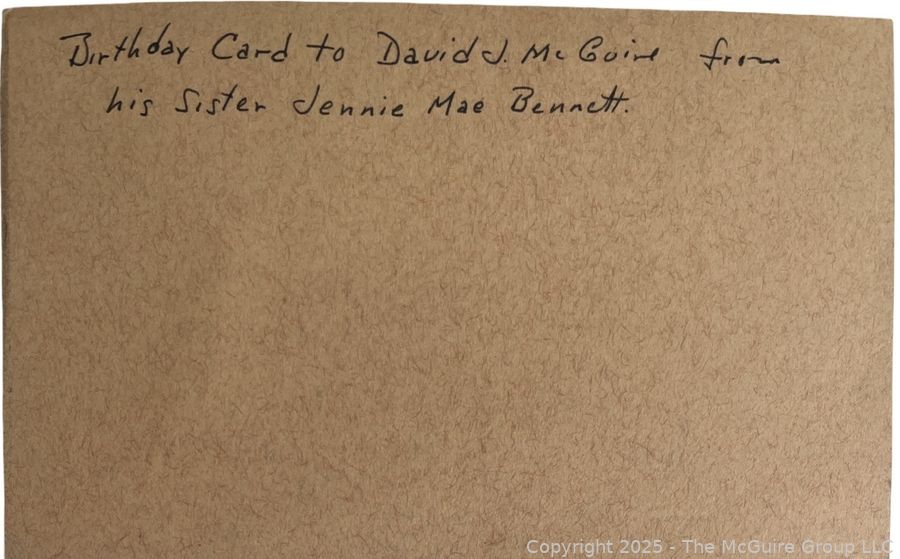 Birthday Card to David J. McGuire from
his Sister Jennie Mae Bennett.
Copyright 2025 - The McGuire Group LLC